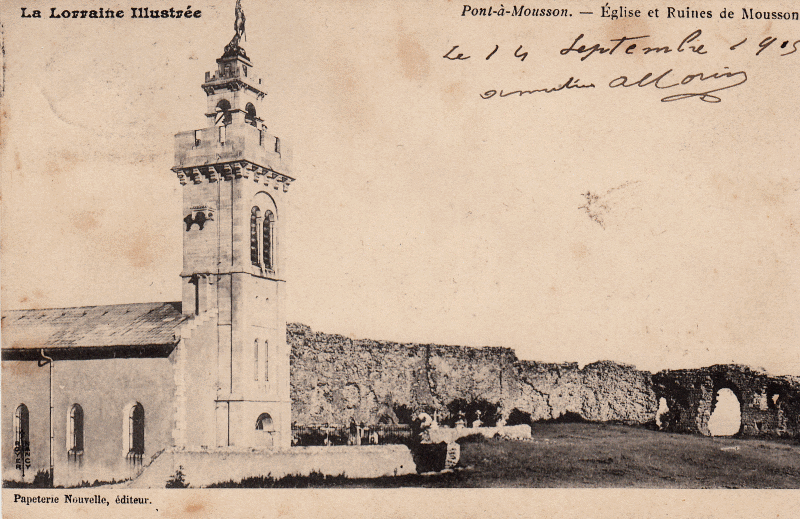 La Lorraine Illustrée
Pont-à-Mousson. — Église et Ruines de Mousson
Le 14 Septembre 1905
Papeterie Nouvelle, éditeur.